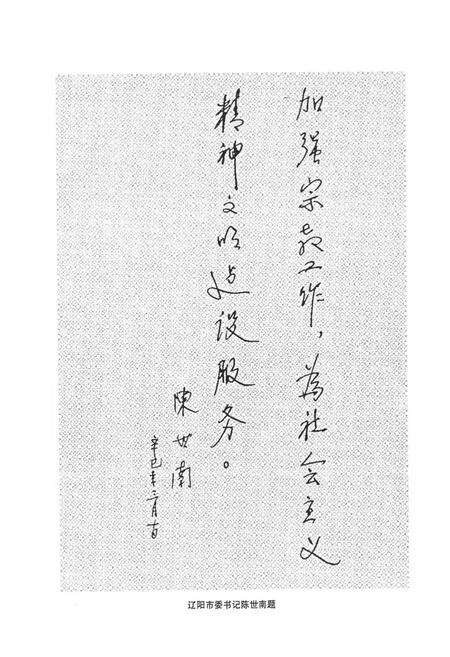 加强宗教工作，為社会主义
精神文明建设服务。
陳世南
辛巳年二月
辽阳市委书记陈世南题